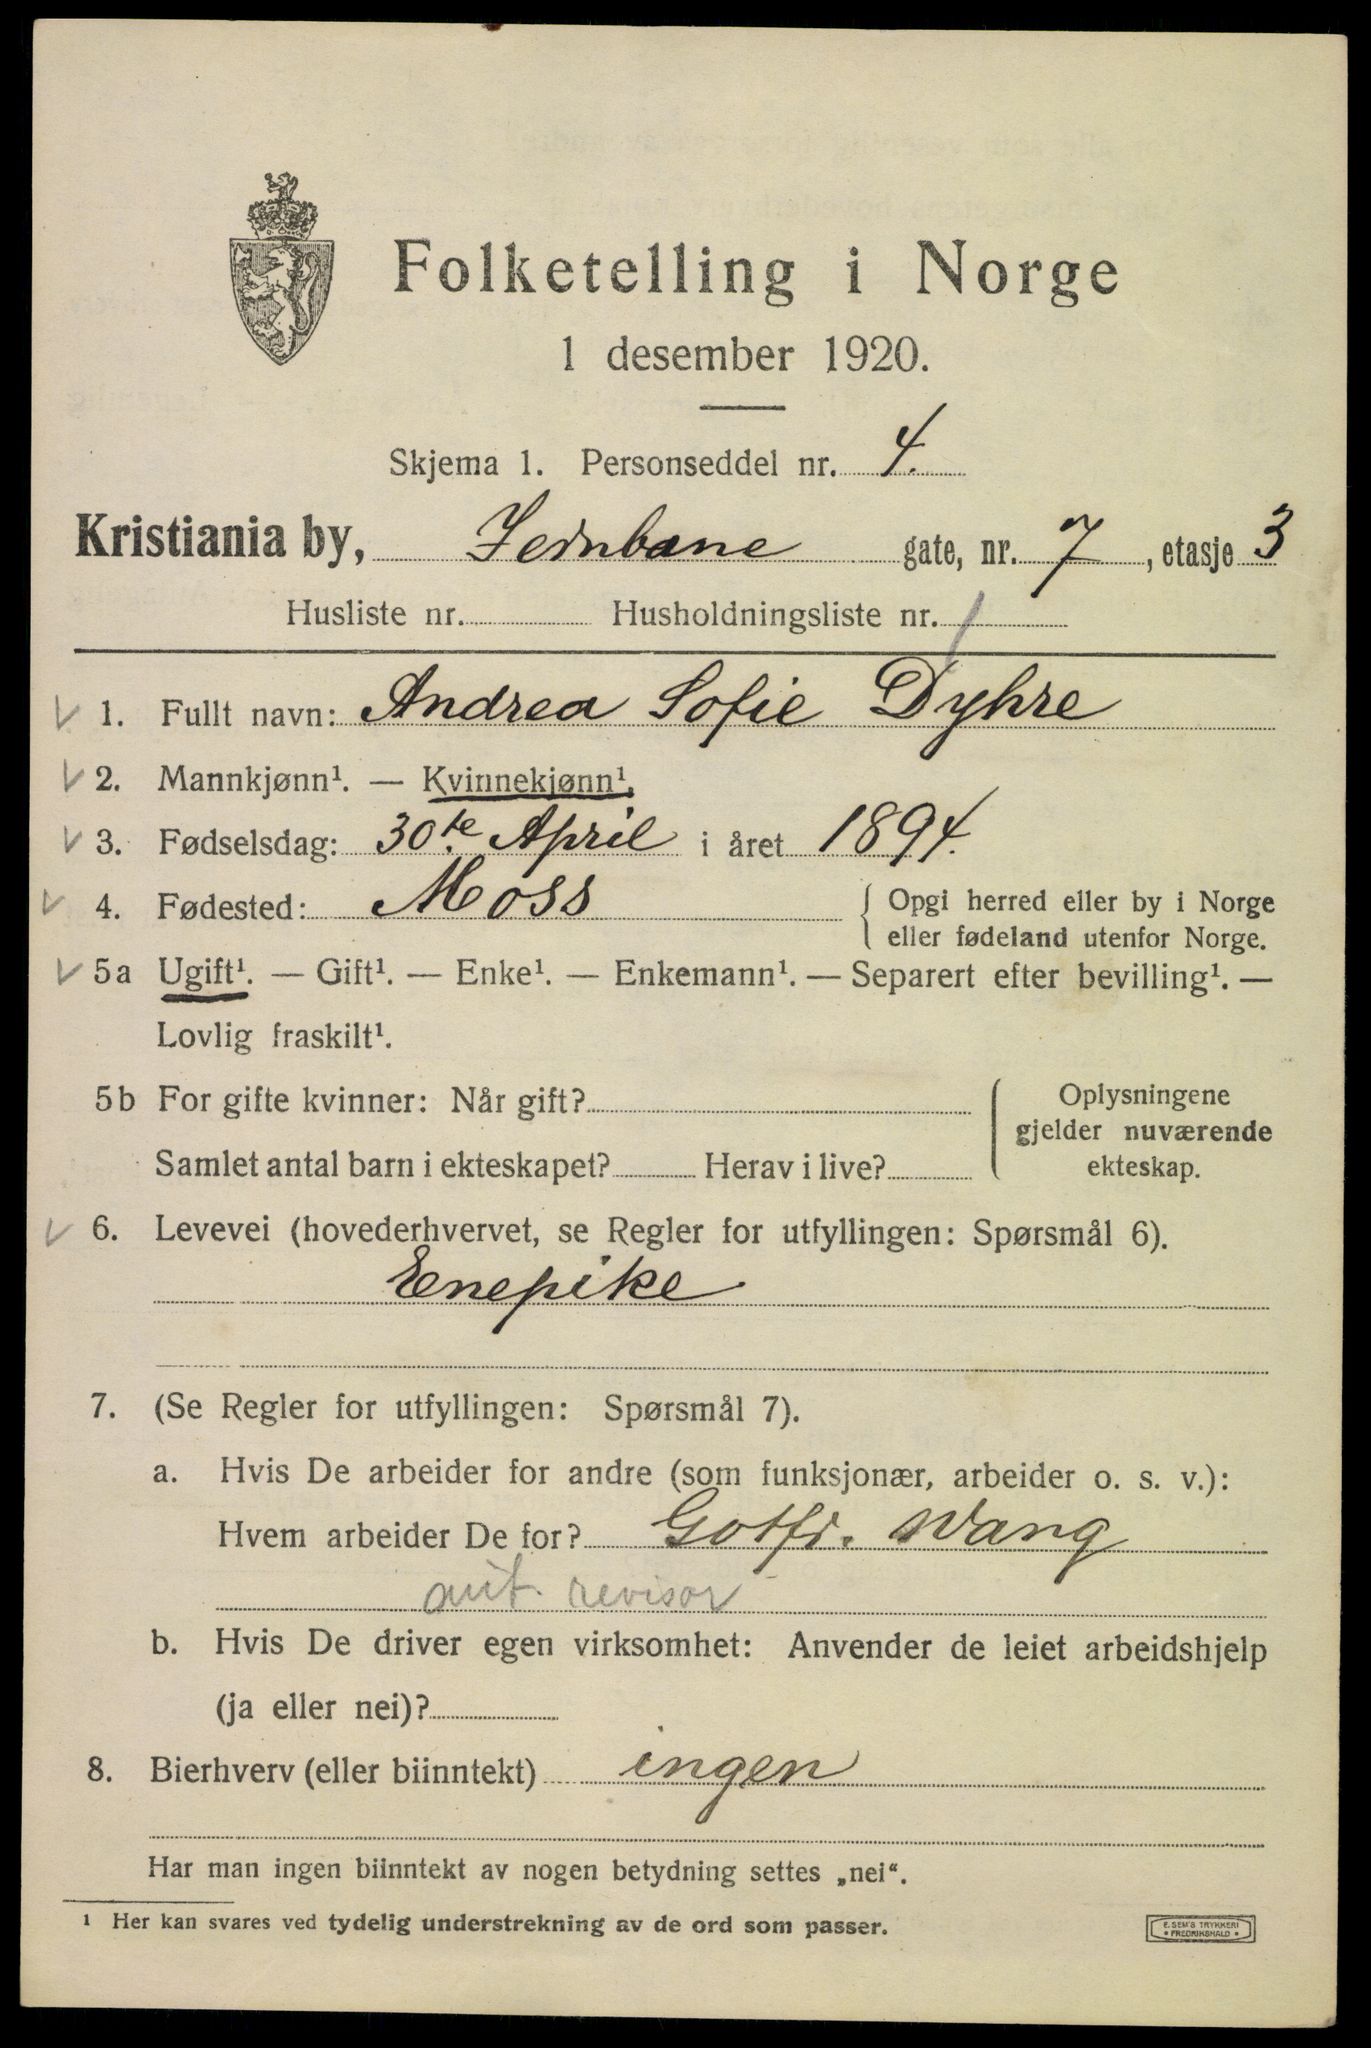 Folketelling i Norge
1 desember 1920.
Skjema 1. Personseddel nr. 4.
Kristiania by, Jernbane gate, nr. 7, etasje 3
Husliste nr. Husholdningsliste nr. 1
1. Fullt navn: Andrea Sofie Dyhre
2. Mannkjønn¹. — Kvinnekjønn¹.
3. Fødselsdag: 30te April i året 1894.
4. Fødested: Moss { Opgi herred eller by i Norge
eller fødeland utenfor Norge.
5a Ugift¹. — Gift¹. — Enke¹. — Enkemann¹. — Separert efter bevilling¹. —
Lovlig fraskilt¹.
5b For gifte kvinner: Når gift? { Oplysningene
gjelder nuværende
Samlet antal barn i ekteskapet? Herav i live? ekteskap.
6. Levevei (hovederhvervet, se Regler for utfyllingen: Spørsmål 6).
Enepike
7. (Se Regler for utfyllingen: Spørsmål 7).
a. Hvis De arbeider for andre (som funksjonær, arbeider o. s. v.):
Hvem arbeider De for? Gotfr. Wang
aut. revisor
b. Hvis De driver egen virksomhet: Anvender de leiet arbeidshjelp
(ja eller nei)?
8. Bierhverv (eller biinntekt) ingen
Har man ingen biinntekt av nogen betydning settes „nei“.
¹ Her kan svares ved tydelig understrekning av de ord som passer.
E. SEM'S TRYKKERI
• FREDRIKSHALD •